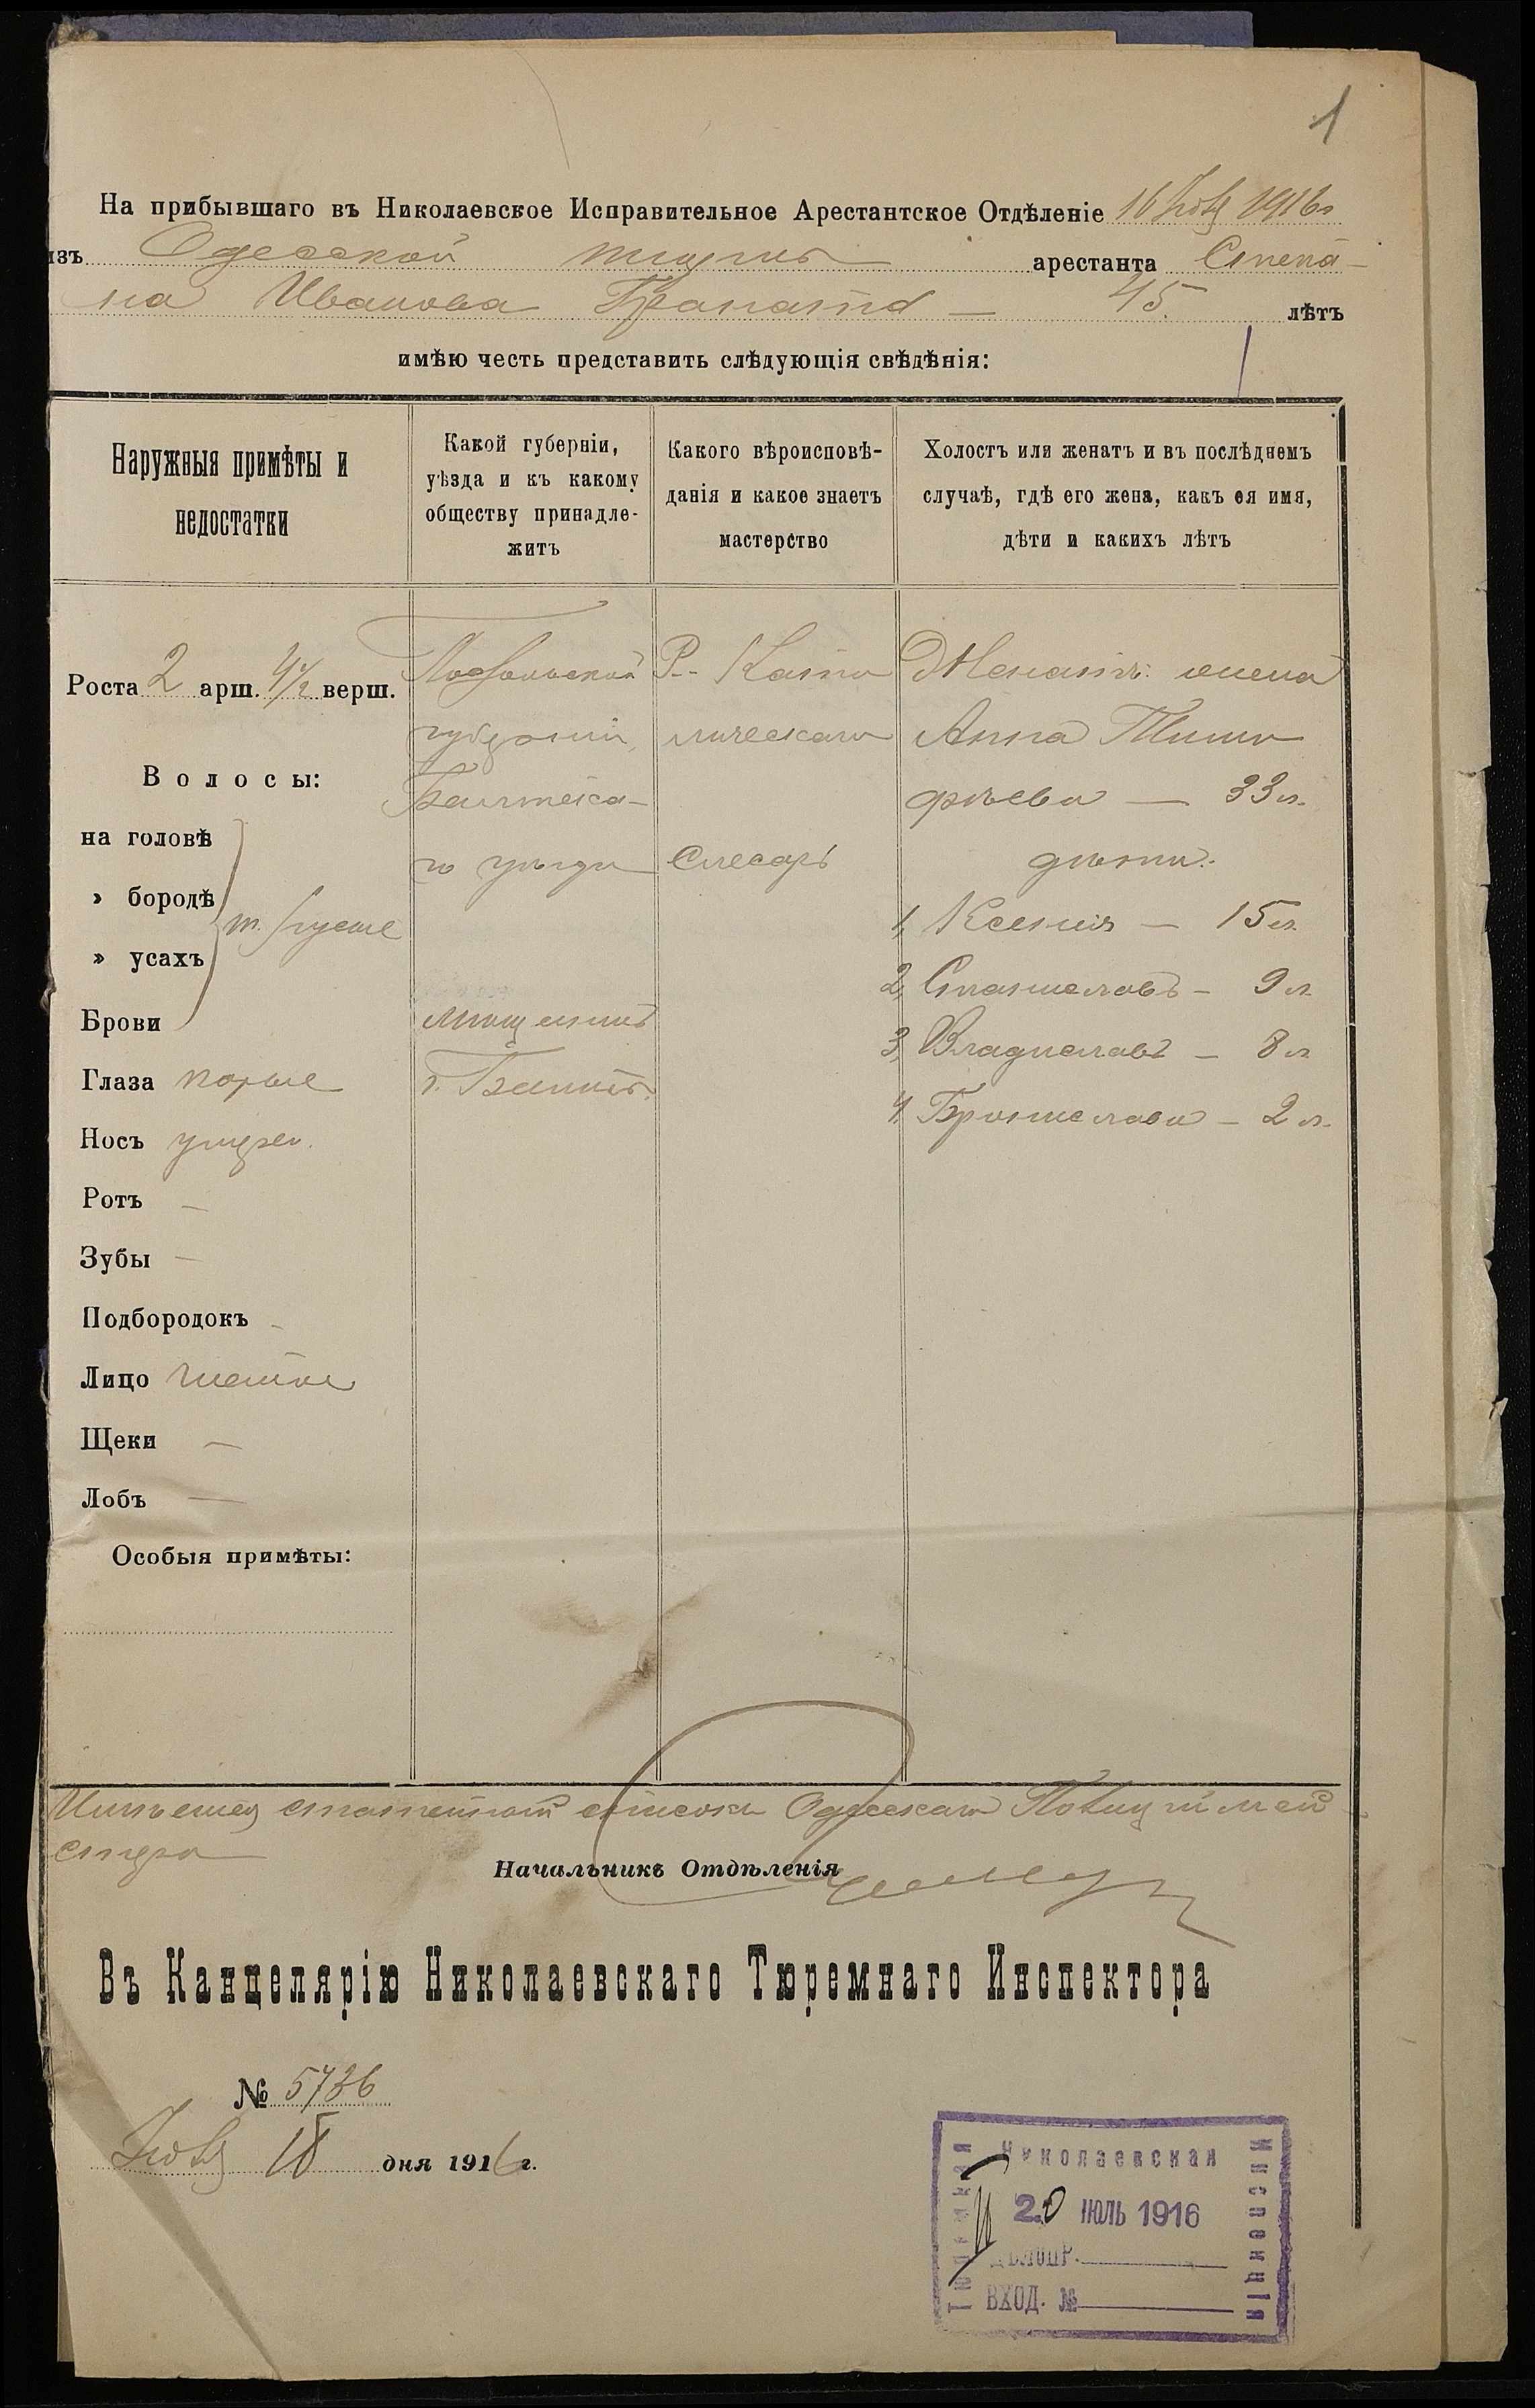 1
На прибывшаго въ Николаевское Исправительное Арестантское Отдѣленіе 16 Іюля 1916 г
изъ Одесской тюрьмы арестанта Степа-
на Иванова Гранатъ — 45. лѣтъ
имѣю честь представить слѣдующія свѣдѣнія:
Наружныя примѣты и
недостатки
Какой губерніи,
уѣзда и къ какому
обществу принадле-
житъ
Какого вѣроисповѣ-
данія и какое знаетъ
мастерство
Холостъ или женатъ и въ послѣднемъ
случаѣ, гдѣ его жена, какъ ея имя,
дѣти и какихъ лѣтъ
Роста 2 арш. 4 1/2 верш.
Волосы:
на головѣ
» бородѣ
» усахъ
т. русые
Брови
Глаза карые
Носъ умѣрен.
Ротъ —
Зубы —
Подбородокъ -
Лицо чистое
Щеки —
Лобъ —
Особыя примѣты:
Подольской
губерніи,
Балтска-
го уѣзда
мѣщанинъ
г. Балты.
Р.- Като
лическаго
Слесарь
Женатъ: жена
Анна Тимо
фѣева — 33 л.
дѣти:
1, Ксенія — 15 л.
2, Станиславъ — 9 л.
3, Владиславъ — 8 л.
4, Брониславъ — 2 л.
Имѣется статейный списокъ Одесскаго Полицiймей-
стера
Начальникъ Отдѣленія
Въ Канцелярію Николаевскаго Тюремнаго Инспектора
№ 5736
Іюля 18 дня 1916 г.
Николаевская
Тюремная
Инспекція
20 ІЮЛЬ 1916
ДѢЛОПР.
ВХОД. №